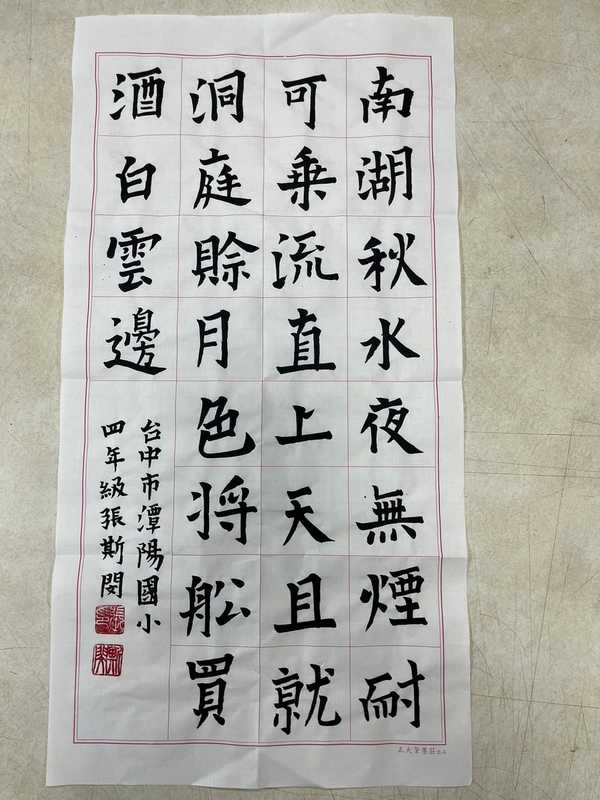 南湖秋水夜無煙耐
可乗流直上天且就
洞庭賒月色将舩買
酒白雲邊
台中市潭陽國小
四年級張斯閔